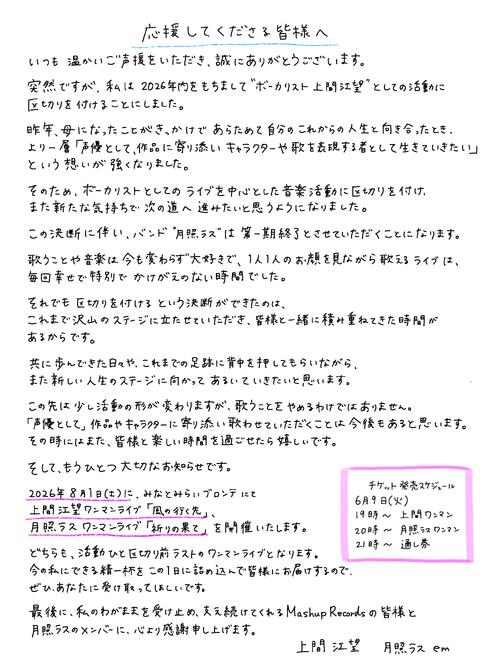 応援してくださる皆様へ
いつも 温かいご声援をいただき、誠にありがとうございます。
突然ですが、私は 2026年内をもちまして"ボーカリスト上間江望"としての活動に
区切りを付けることにしました。
昨年、母になったことがきっかけで あらためて自分のこれからの人生と向き合ったとき、
より一層「声優として、作品に寄り添い キャラクターや歌を表現する者として生きていきたい」
という 想いが 強くなりました。
そのため、ボーカリストとしての ライブを中心とした音楽活動に区切りを付け、
また新たな気持ちで 次の道へ 進みたいと思うようになりました。
この決断に伴い、バンド"月照ラス"は 第一期終了とさせていただくことになります。
歌うことや音楽は 今も変わらず大好きで、1人1人のお顔を見ながら歌えるライブは、
毎回幸せで特別で かけがえのない時間でした。
それでも 区切りを付ける という決断ができたのは、
これまで沢山のステージに立たせていただき、皆様と一緒に積み重ねてきた時間が
あるからです。
共に歩んできた日々や、これまでの足跡に背中を押してもらいながら、
また新しい人生のステージに向かって あるいていきたいと思います。
この先は少し活動の形が変わりますが、歌うことをやめるわけではありません。
「声優として」作品やキャラクターに寄り添い歌わせていただくことは 今後もあると思います。
その時にはまた、皆様と楽しい時間を過ごせたら嬉しいです。
そして、もうひとつ 大切なお知らせです。
2026年 8月1日(土)に、みなとみらいブロンテにて
上間江望ワンマンライブ「風の行く先」、
月照ラス ワンマンライブ「祈りの果て」を開催いたします。
どちらも、活動ひと区切り前 ラストのワンマンライブとなります。
今の私にできる精一杯をこの1日に詰め込んで皆様にお届けするので、
ぜひ、あなたに受け取ってほしいです。
チケット発売スケジュール
6月9日(火)
19時〜 上間ワンマン
20時〜 月照ラスワンマン
21時〜 通し券
最後に、私のわがままを受け止め、支え続けてくれるMashup Recordsの皆様と
月照ラスのメンバーに、心より感謝申し上げます。
上間江望 月照ラス em